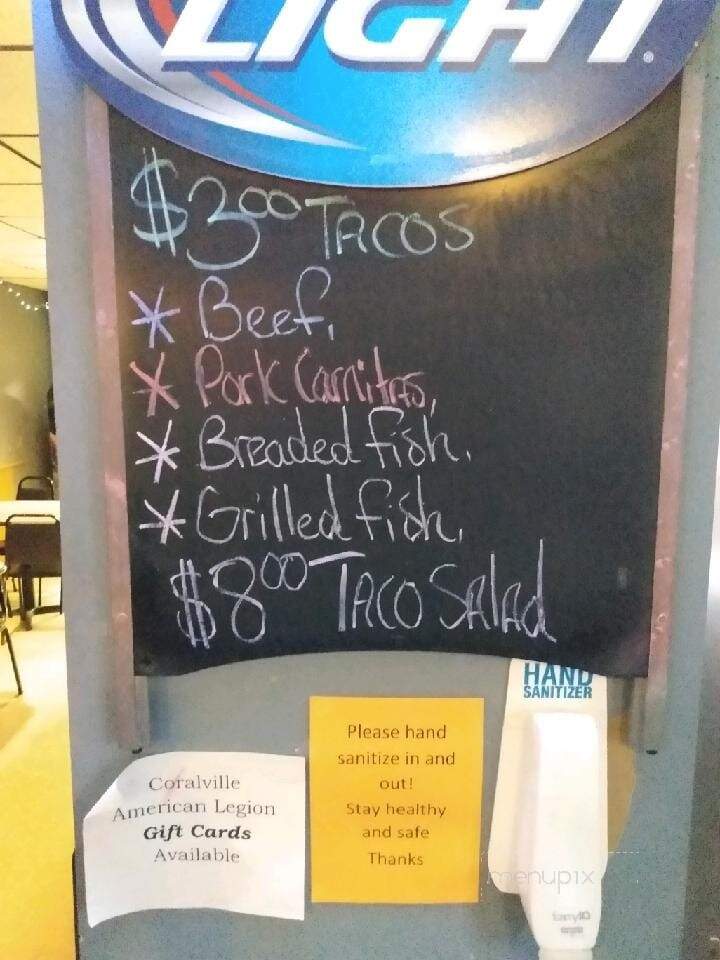 LIGHT
$3.00 TACOS
* Beef.
* Pork Carnitas,
* Breaded fish.
* Grilled fish.
$8.00 TACO SALAD
HAND
SANITIZER
Please hand
sanitize in and
out!
Stay healthy
and safe
Thanks
Coralville
American Legion
Gift Cards
Available
menupix